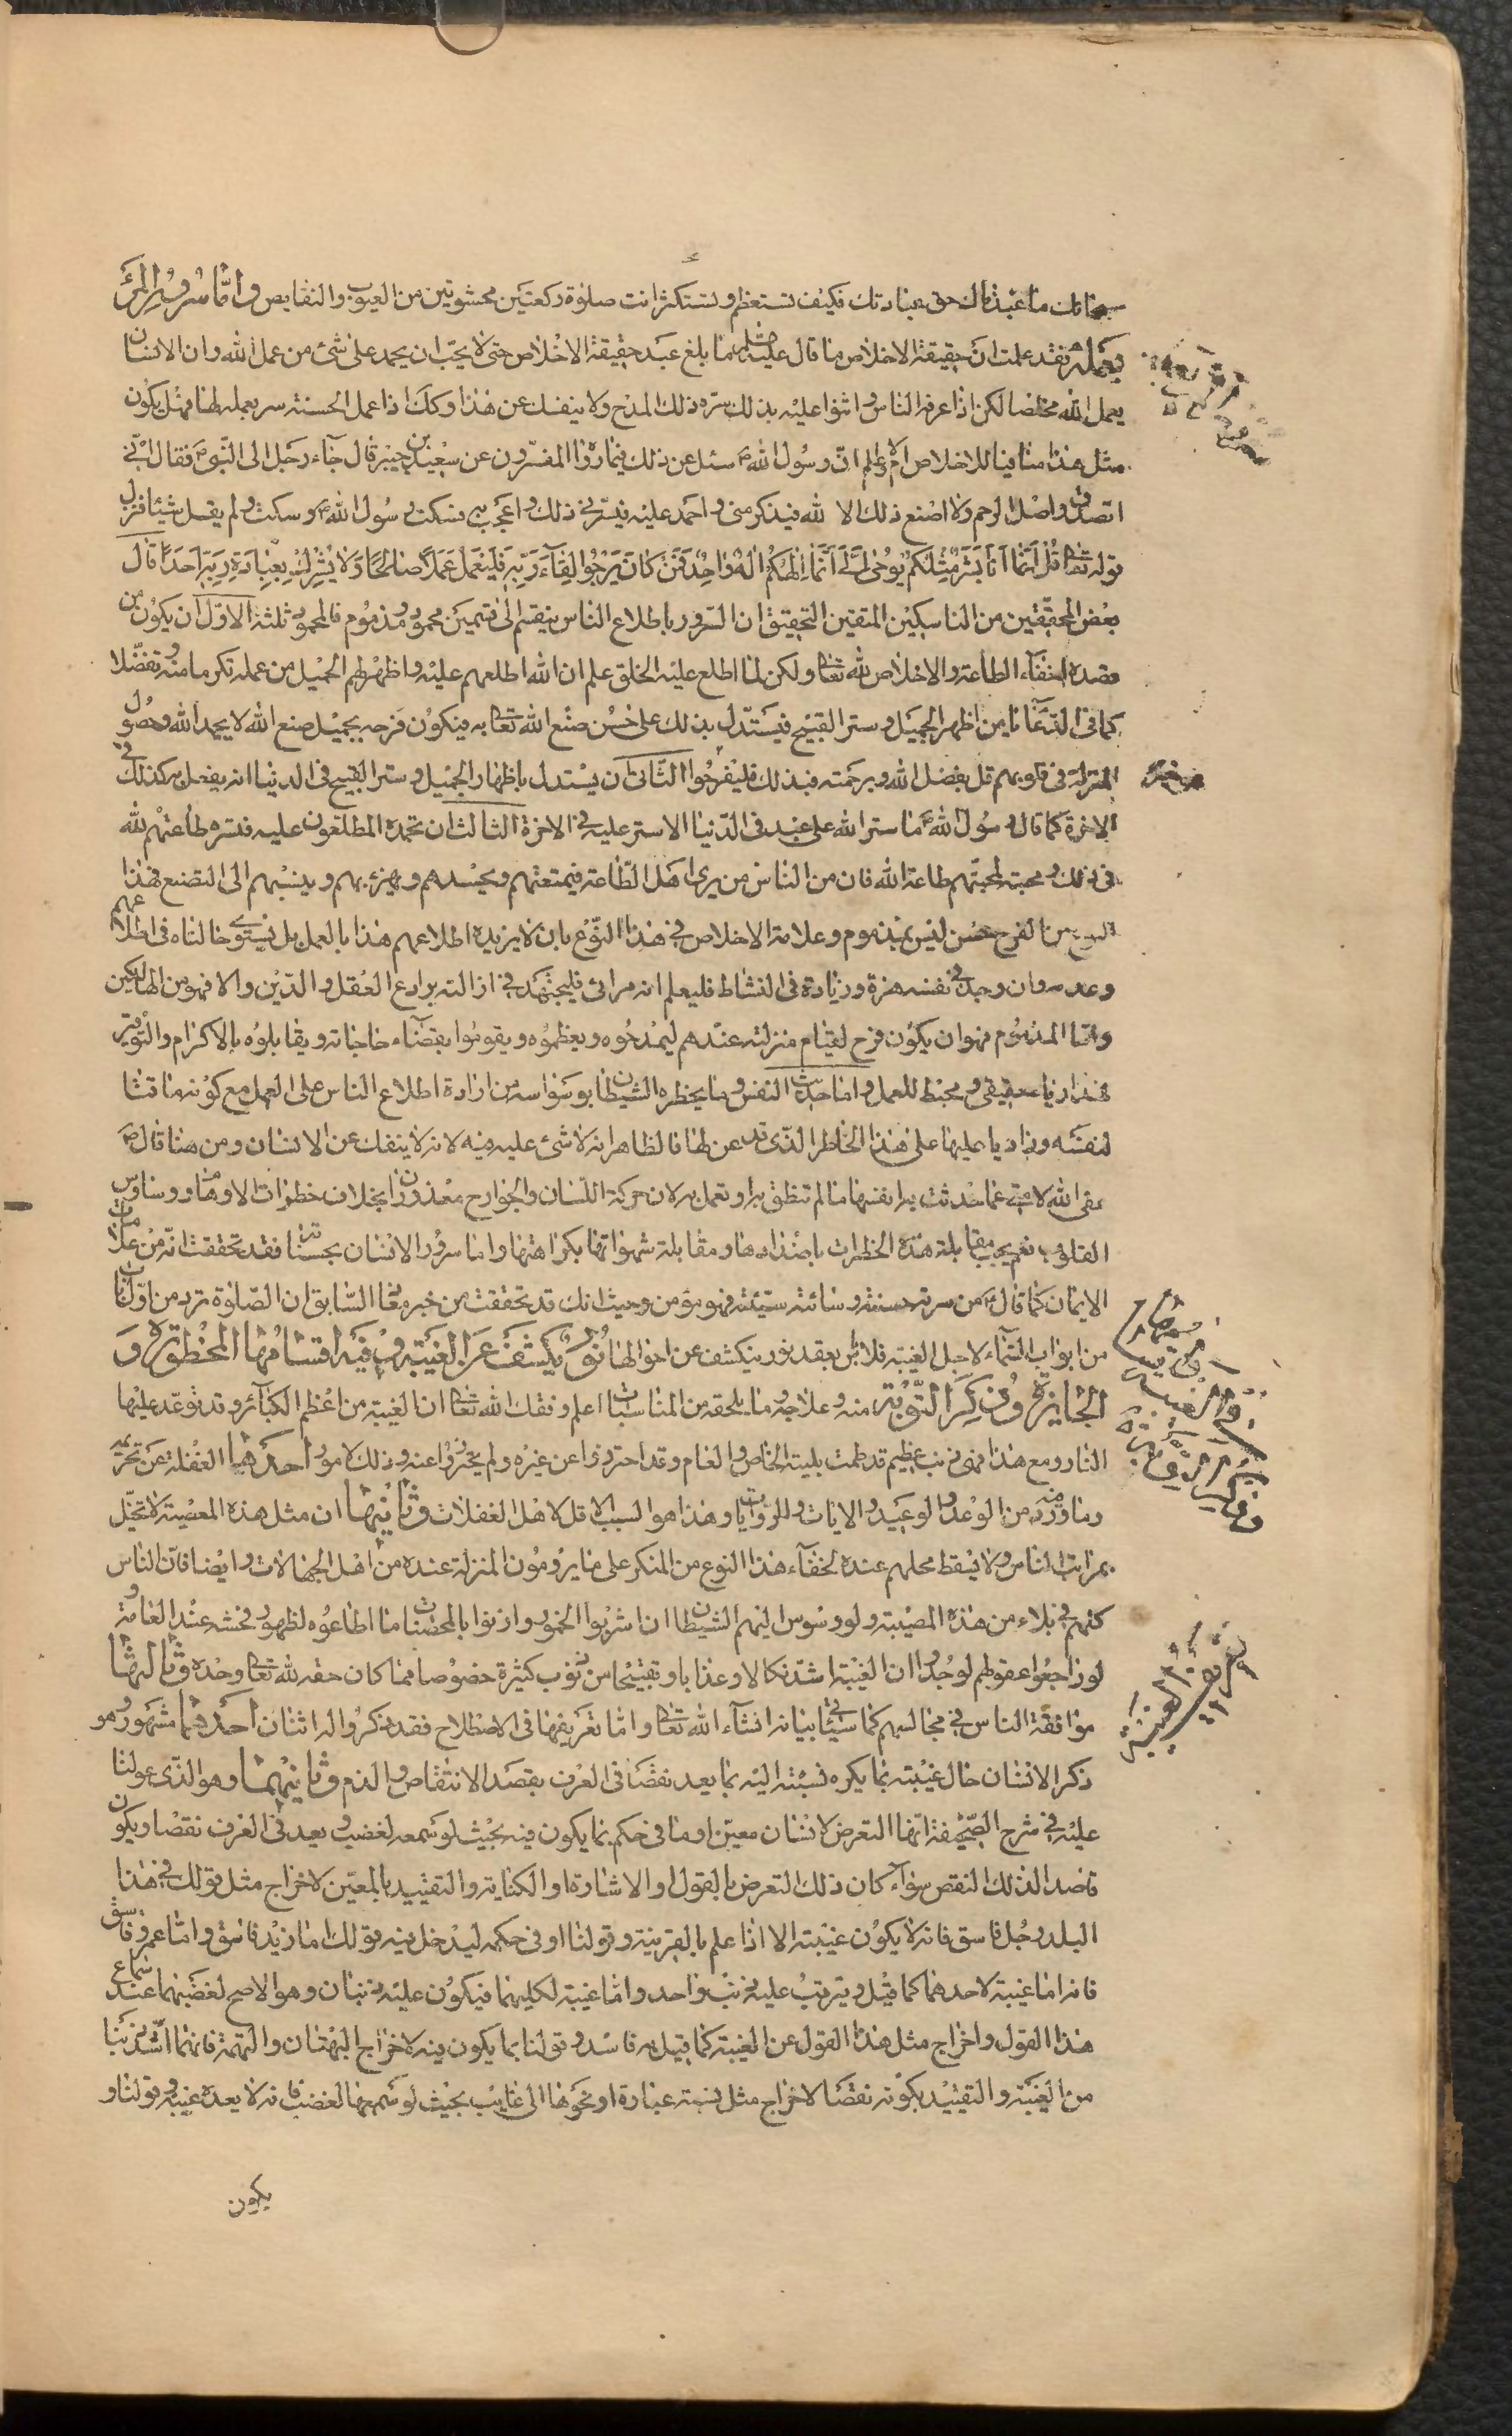 سبحانك ما عبدناك حق عبادتك فكيف تستعظم وتستكثر انت صلوة ركعتين محشوتين من العيوب والنقايص واما سرور المرء
بعمله فقد علمت ان حقيقة الاخلاص ما قال عليه ما بلغ عبد حقيقة الاخلاص حتى لا يحب ان يحمد على شئ من عمل الله وان الانسان
يعمل لله مخلصا لكن اذا عرفه الناس واثنوا عليه بذلك سره ذلك المدح ولا ينفك عن هذا وكك اذا عمل الحسنة سر بعمله لها فهل يكون
مثل هذا منافيا للاخلاص ام لا والم ان رسول الله سئل عن ذلك فيما رواه المفسرون عن سعيد بن جبير قال جاء رجل الى النبي فقال اني
اتصدق واصل الرحم ولا اصنع ذلك الا لله فيذكر مني واحمد عليه فيسرني ذلك واعجب به فسكت رسول الله وسكت ولم يقل شيئا فنزل
قوله تعالى قل انما انا بشر مثلكم يوحى الي انما الهكم اله واحد فمن كان يرجوا لقاء ربه فليعمل عملا صالحا ولا يشرك بعبادة ربه احدا قال
بعض المحققين من الناسكين المتقين التحقيق ان السرور باطلاع الناس ينقسم الى قسمين محمود ومذموم فالمحمود ثلثة الاول ان يكون من
قصده اخفاء الطاعة والاخلاص لله تعالى ولكن لما اطلع عليه الخلق علم ان الله اطلعهم عليه واظهر لهم الجميل من عمله تكرما منه وتفضلا
كما في الدعاء يا من اظهر الجميل وستر القبيح فيستدل بذلك على حسن صنع الله تعالى به فيكون فرحه بجميل صنع الله لا بحمد الله وحصول
المنزلة في قلوبهم قل بفضل الله وبرحمته فبذلك فليفرحوا الثاني ان يستدل باظهار الجميل وستر القبيح في الدنيا انه يفعل به كذلك في
الاخرة كما قال رسول الله ما ستر الله على عبد في الدنيا الا ستر عليه في الاخرة الثالث ان تحمده المطلعون عليه فتسره طاعتهم لله
في ذلك ومحبته لمحبتهم طاعة الله فان من الناس من يرى اهل الطاعة فيمقتهم ويحسدهم ويهزء بهم وينسبهم الى التصنع فهذا
النوع من الفرح حسن ليس بمذموم وعلامة الاخلاص في هذا النوع بان لا يزيده اطلاعهم هذا بالعمل بل يستوي حالتاه في اطلاعهم
وعدمه وان وجد في نفسه هزة وزيادة في النشاط فليعلم انه مرائي فليجتهد في ازالته برادع العقل والدين والا فهو من الهالكين
واما المذموم فهو ان يكون فرح لقيام منزلته عندهم ليمدحوه ويعظموه ويقوموا بقضاء حاجاته ويقابلوه بالاكرام والتوقير
فهذا رياء حقيقي ومحبط للعمل واما حديث النفس وما يخطره الشيطان بوسواسه من ارادة اطلاع الناس على العمل مع كونه ماقتا
لنفسه وزاريا عليها على هذا الخاطر الذي قد عن لها فالظاهر انه لا شئ عليه فيه لانه لا ينفك عن الانسان ومن هنا قال
عفى الله لامتي عما حدثت به انفسها ما لم تنطق به او تعمل به لان حركة اللسان والجوارح معذوران بخلاف خطرات الاوهام ووساوس
القلوب نعم يجب مقابلة هذه الخطرات باضدادها ومقابلة شهواتها بكراهتها واما سرور الانسان بحسناته فقد تحققت انه من علامات
الايمان كما قال من سرته حسنته وسائته سيئته فهو مؤمن وحيث انك قد تحققت من خبر معاذ السابق ان الصلوة ترد من اول باب
من ابواب السماء لاجل الغيبة فلا بأس بعقد نور ينكشف عن احوالها نور يكشف عن الغيبة وفيه اقسامها المحظورة و
الجايزة وذكر التوبة منه وعلاجه وما يلحقه من المناسبات اعلم وفقك الله تعالى ان الغيبة من اعظم الكبائر وقد توعد عليها
النار ومع هذا فهي ذنب عظيم قد طمت بليته الخاص والعام وقد احترزوا عن غيره ولم يحترزوا عنه وذلك لامور احدها الغفلة عن تحريمه
وما ورد من الوعد والوعيد والايات والروايات وهذا هو السبب الاقل لاهل الغفلات وثانيها ان مثل هذه المعصية لا تخل
بمراتب الناس ولا يسقط محلهم عنده لخفاء هذا النوع من المنكر على ما يرومون المنزلة عنده من اهل الجهالات وايضا فان الناس
كلهم في بلاء من هذه المصيبة ولو وسوس اليهم الشيطان ان اشربوا الخمور وازنوا بالمحصنات ما اطاعوه لظهور فحشه عند العامة
لو راجعوا عقولهم لوجدوا ان الغيبة اشد نكالا وعذابا وتبقيحا من ذنوب كثيرة خصوصا مما كان حقه لله تعالى وحده وثالثها
موافقة الناس في مجالسهم كما سيأتي بيانه انشاء الله تعالى واما تعريفها في الاصطلاح فقد ذكروا له اثنان احدهما مشهور هو
ذكر الانسان حال غيبته بما يكره نسبته اليه بما يعد نقصا في العرف بقصد الانتقاص والذم وثانيهما وهو الذي عولنا
عليه في شرح الصحيفة انها التعرض لانسان معين او ما في حكم بما يكون فيه بحيث لو سمعه لغضب ويعد في العرف نقصا ويكون
قاصدا لذلك النقص سواء كان ذلك التعرض بالقول او الاشارة او الكناية والتقييد بالمعين لاخراج مثل قولك في هذا
البلد رجل فاسق فانه لا يكون غيبته الا اذا علم بالقرينة وقولنا او في حكمه ليدخل فيه قولك اما زيد فاسق واما عمرو فاسق
فانه اما غيبة لاحدهما كما قيل ويترتب عليه ذنب واحد واما غيبة لكليهما فيكون عليه ذنبان وهو الاصح لغضبهما عند سماع
هذا القول واخراج مثل هذا القول عن الغيبة كما قيل به فاسد وقولنا بما يكون فيه لاخراج البهتان والتهمة فانهما اشد ذنبا
من الغيبة والتقييد بكونه نقصا لاخراج مثل نسبة عبادة او نحوها الى غايب بحيث لو سمعها لغضب فانه لا يعده غيبة وقولنا و
يكون
تعريف الغيبة